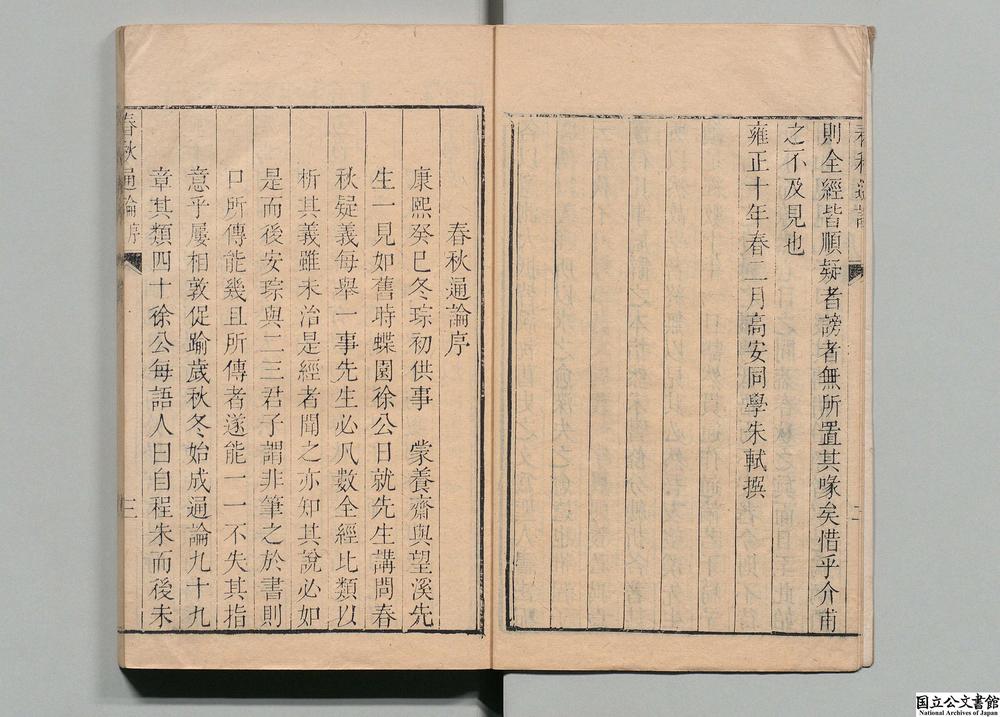 則全經皆順疑者謗者無所置其喙矣惜乎介甫
之不及見也
雍正十年春二月高安同學朱軾撰
二
春秋通論序
康熙癸巳冬琮初供事　蒙養齋與望溪先
生一見如舊時蝶園徐公日就先生講問春
秋疑義每舉一事先生必凡數全經比類以
析其義雖未治是經者聞之亦知其說必如
是而後安琮與二三君子謂非筆之於書則
口所傳能幾且所傳者遂能一一不失其指
意乎屢相敦促踰歲秋冬始成通論九十九
章其類四十徐公每語人曰自程朱而後未
春秋通論序
三
国立公文書館
National Archives of Japan